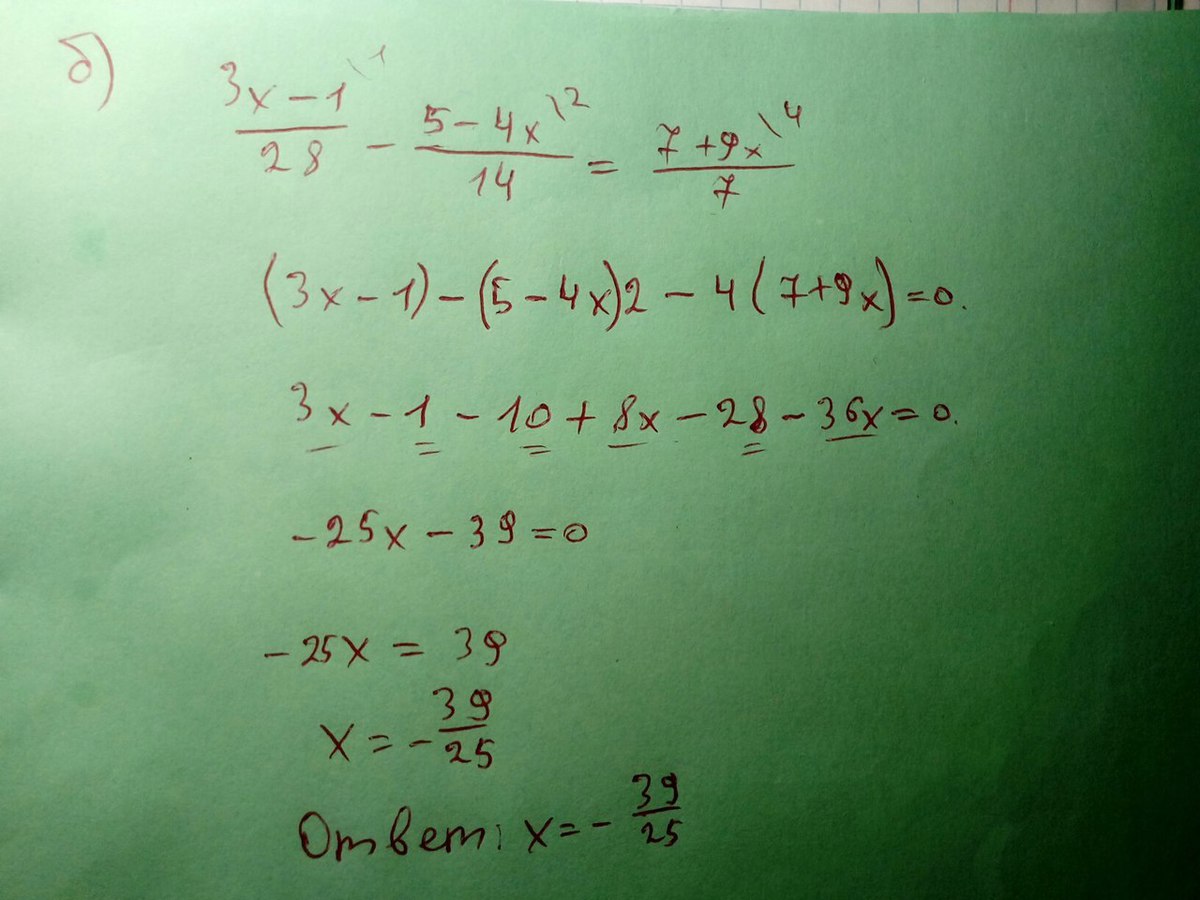 б) (3x-1)\1/28 - (5-4x)\2/14 = (7+9x)\4/7
(3x-1)-(5-4x)2-4(7+9x)=0.
3x-1-10+8x-28-36x=0.
-25x-39=0
-25x=39
x=-39/25
Ответ: x=-39/25